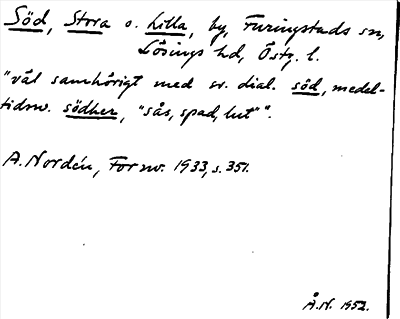 Söd, Stora o. Lilla, by, Furingstads sn,
Lösings hd, Östg. l.
"väl samhörigt med sv. dial. söd, medel-
tidsv. södher, "sås, spad, lut"".
A. Nordén, Fornv. 1933, s. 351.
Å. N. 1952.